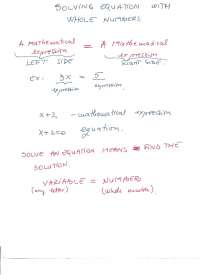 SOLVING EQUATION WITH
WHOLE NUMBERS
A Mathematical expression = A Mathematical expression
LEFT SIDE RIGHT SIDE
ex: 3x = 5
expression expression
x+2 - mathematical expression
x+2=0 equation.
SOLVE AN EQUATION MEANS FIND THE
SOLUTION.
VARIABLE = NUMBERS
(any letter) (whole number)